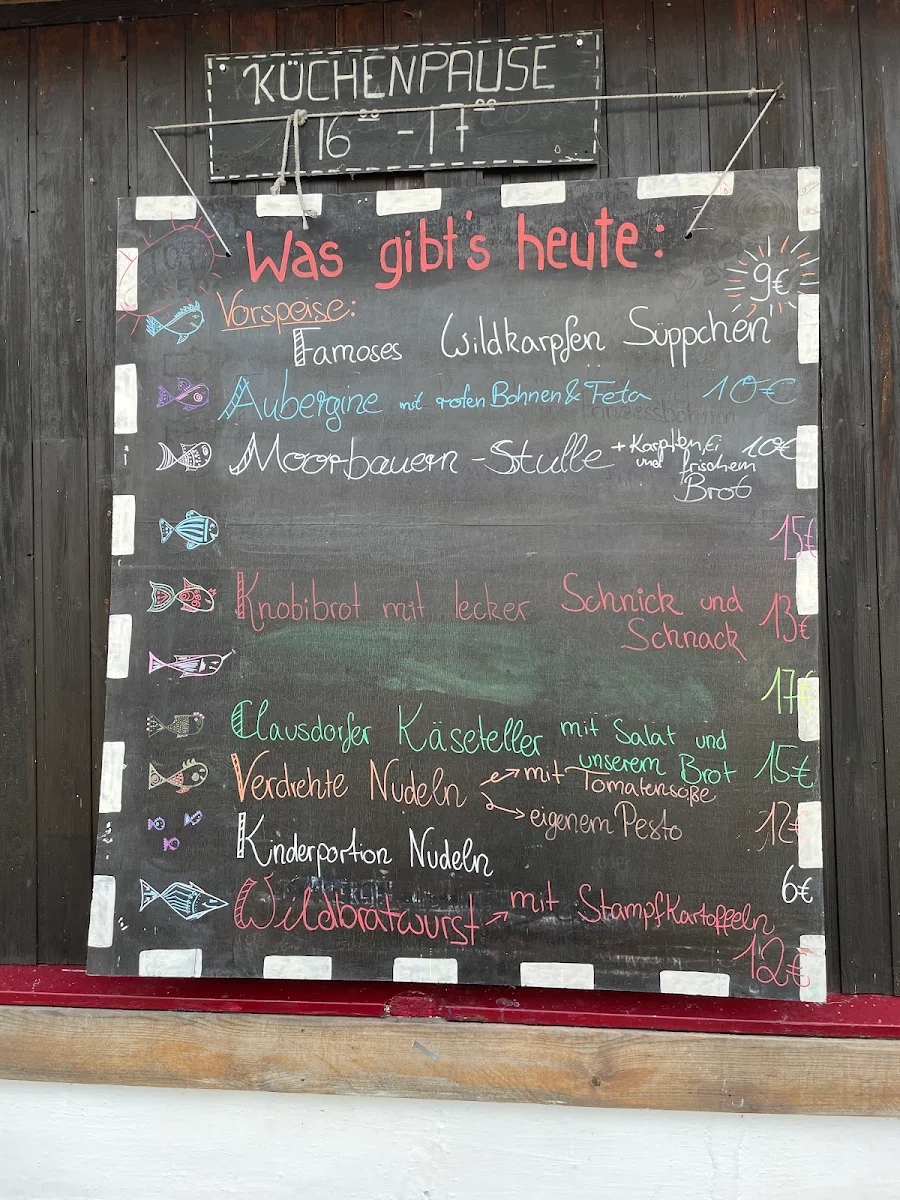 KÜCHENPAUSE
16⁰⁰ - 17⁰⁰
Was gibt's heute:
9€
Vorspeise:
Famoses Wildkarpfen Süppchen
Aubergine mit roten Bohnen & Feta 10€
Moorbauern-Stulle + Karpfen, Ei 10€
und frischem
Brot
15€
Knobibrot mit lecker Schnick und 13€
Schnack
17€
Clausdorfer Käseteller mit Salat und
unserem Brot 15€
Verdrehte Nudeln mit Tomatensoße
eigenem Pesto 12€
Kinderportion Nudeln
6€
Wildbratwurst mit Stampfkartoffeln
12€